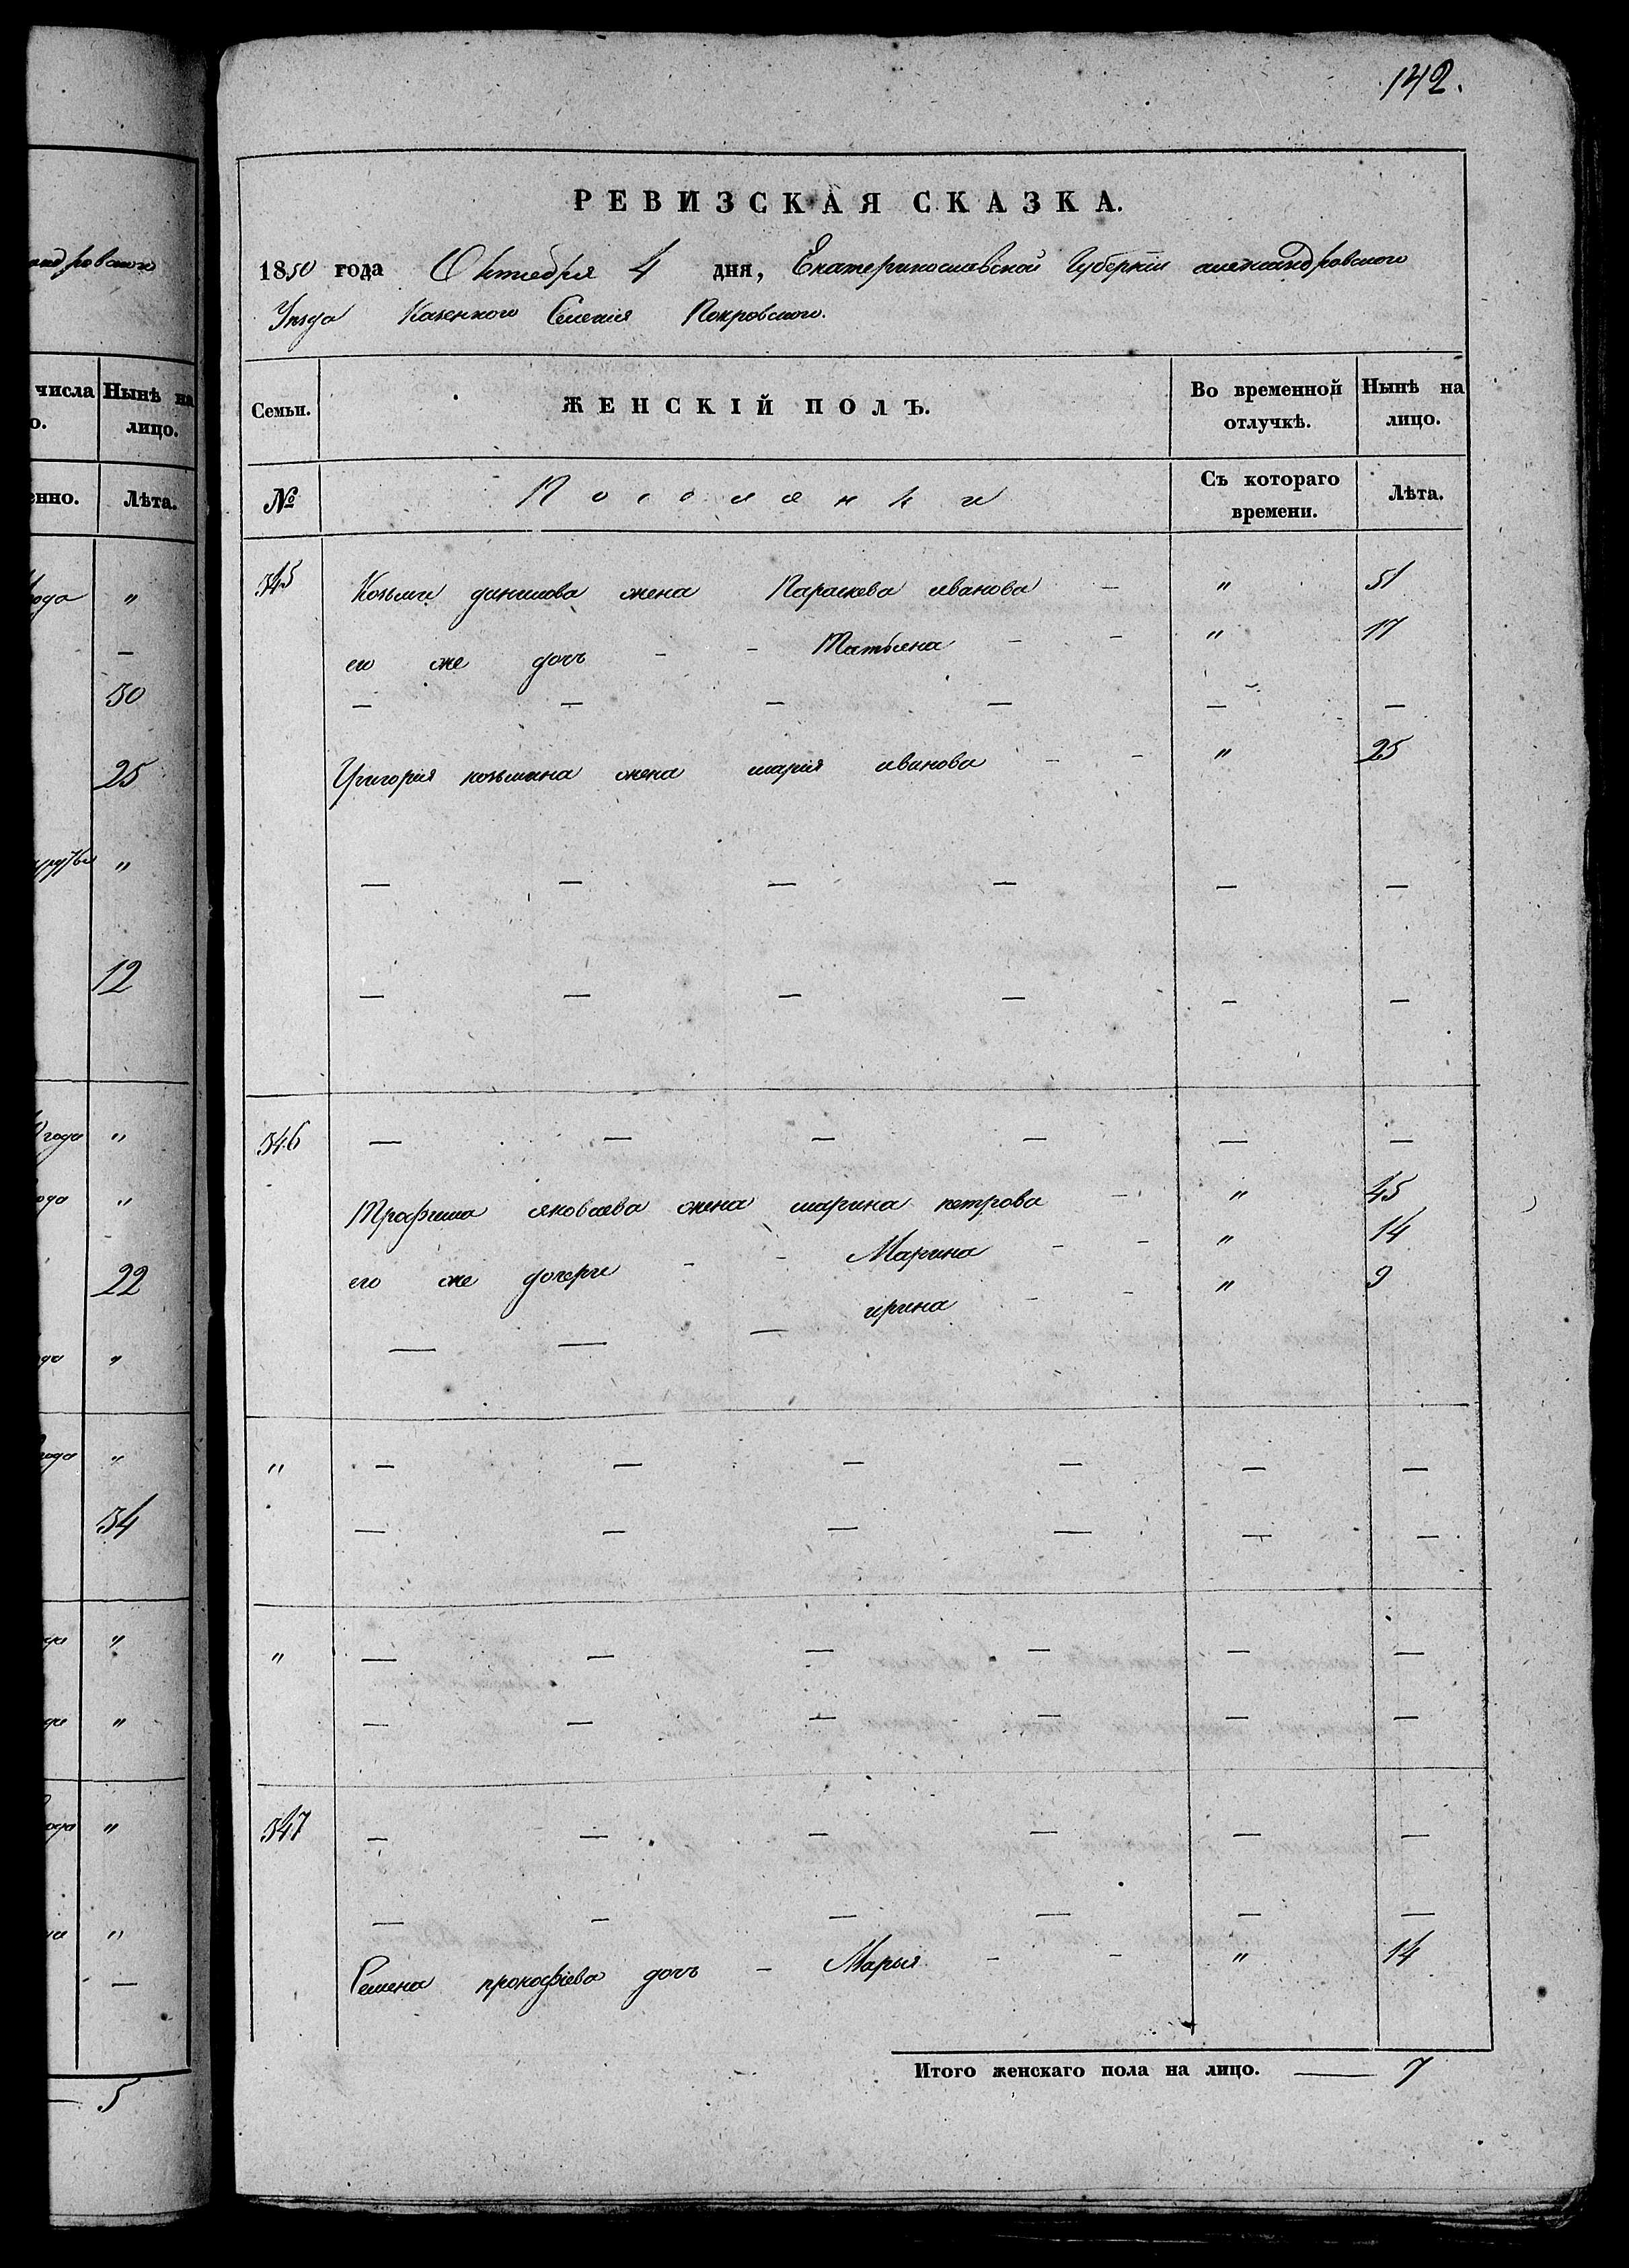 андровского
числа Нынѣ на
о. лицо.
енно. Лѣта.
года "
—
50
25
"
12
года "
года "
22
"
года "
54
"
"
"
"
—
— 5
142.
РЕВИЗСКАЯ СКАЗКА.
1850 года Октября 4 дня, Екатеринославской Губернiи александровского
Уѣзда Казенного Селенiя Покровского.
Семьи. ЖЕНСКІЙ ПОЛЪ. Во временной отлучкѣ. Нынѣ на лицо.
№ Поселянки Съ котораго времени. Лѣта.
545 Козьми данилова жена Параскева иванова — " 51
его же дочь - - Татьяна - - " 17
— — — — — —
Григорiя козьмина жена марiя иванова - - " 25
— — — — — —
— — — — — —
546 — — — — — —
Трофима яковлева жена марина петрова - " 45
его же дочери - - Марина - - " 14
ирина - - " 9
— — —
" — — — — — —
— — — — — —
" — — — — — —
— — — — — —
547 — — — — — —
— — — — — —
Семена прокофiева дочь - Марья - - " 14
Итого женскаго пола на лицо. — 7